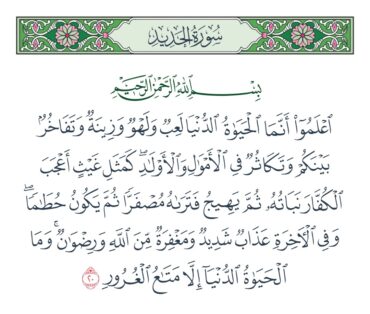 سُورَةُ الحَدِيدِ
بِسْمِ اللَّهِ الرَّحْمَٰنِ الرَّحِيمِ
ٱعۡلَمُوٓاْ أَنَّمَا ٱلۡحَيَوٰةُ ٱلدُّنۡيَا لَعِبٞ وَلَهۡوٞ وَزِينَةٞ وَتَفَاخُرُۢ
بَيۡنَكُمۡ وَتَكَاثُرٞ فِي ٱلۡأَمۡوَٰلِ وَٱلۡأَوۡلَٰدِۖ كَمَثَلِ غَيۡثٍ أَعۡجَبَ
ٱلۡكُفَّارَ نَبَاتُهُۥ ثُمَّ يَهِيجُ فَتَرَىٰهُ مُصۡفَرّٗا ثُمَّ يَكُونُ حُطَٰمٗاۖ
وَفِي ٱلۡأٓخِرَةِ عَذَابٞ شَدِيدٞ وَمَغۡفِرَةٞ مِّنَ ٱللَّهِ وَرِضۡوَٰنٞۚ وَمَا
ٱلۡحَيَوٰةُ ٱلدُّنۡيَآ إِلَّا مَتَٰعُ ٱلۡغُرُورِ ٢٠